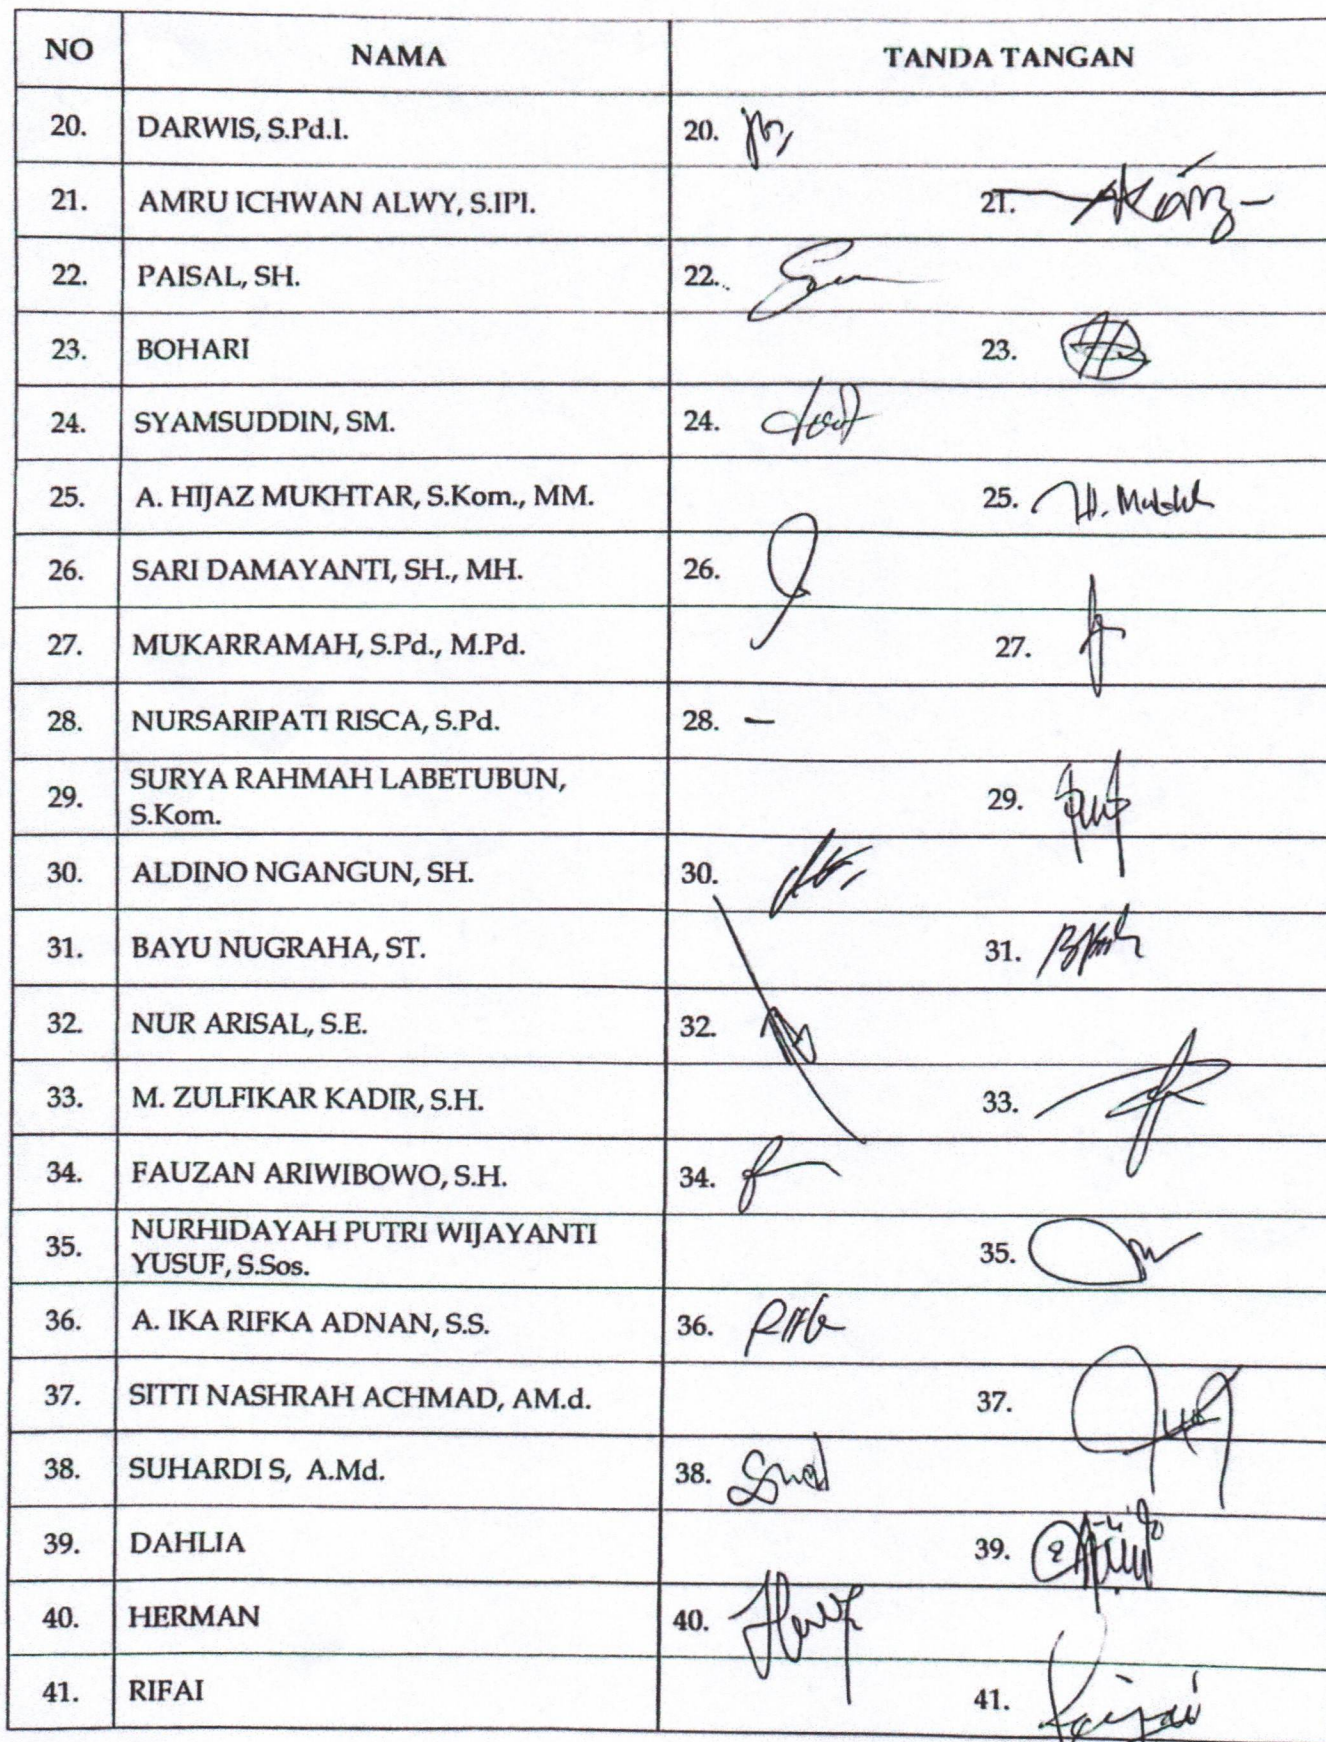 NO NAMA TANDA TANGAN
20. DARWIS, S.Pd.I. 20.
21. AMRU ICHWAN ALWY, S.IPI. 21.
22. PAISAL, SH. 22.
23. BOHARI 23.
24. SYAMSUDDIN, SM. 24.
25. A. HIJAZ MUKHTAR, S.Kom., MM. 25.
26. SARI DAMAYANTI, SH., MH. 26.
27. MUKARRAMAH, S.Pd., M.Pd. 27.
28. NURSARIPATI RISCA, S.Pd. 28. –
29. SURYA RAHMAH LABETUBUN, 29.
S.Kom.
30. ALDINO NGANGUN, SH. 30.
31. BAYU NUGRAHA, ST. 31.
32. NUR ARISAL, S.E. 32.
33. M. ZULFIKAR KADIR, S.H. 33.
34. FAUZAN ARIWIBOWO, S.H. 34.
35. NURHIDAYAH PUTRI WIJAYANTI 35.
YUSUF, S.Sos.
36. A. IKA RIFKA ADNAN, S.S. 36.
37. SITTI NASHRAH ACHMAD, AM.d. 37.
38. SUHARDI S, A.Md. 38.
39. DAHLIA 39.
40. HERMAN 40.
41. RIFAI 41.